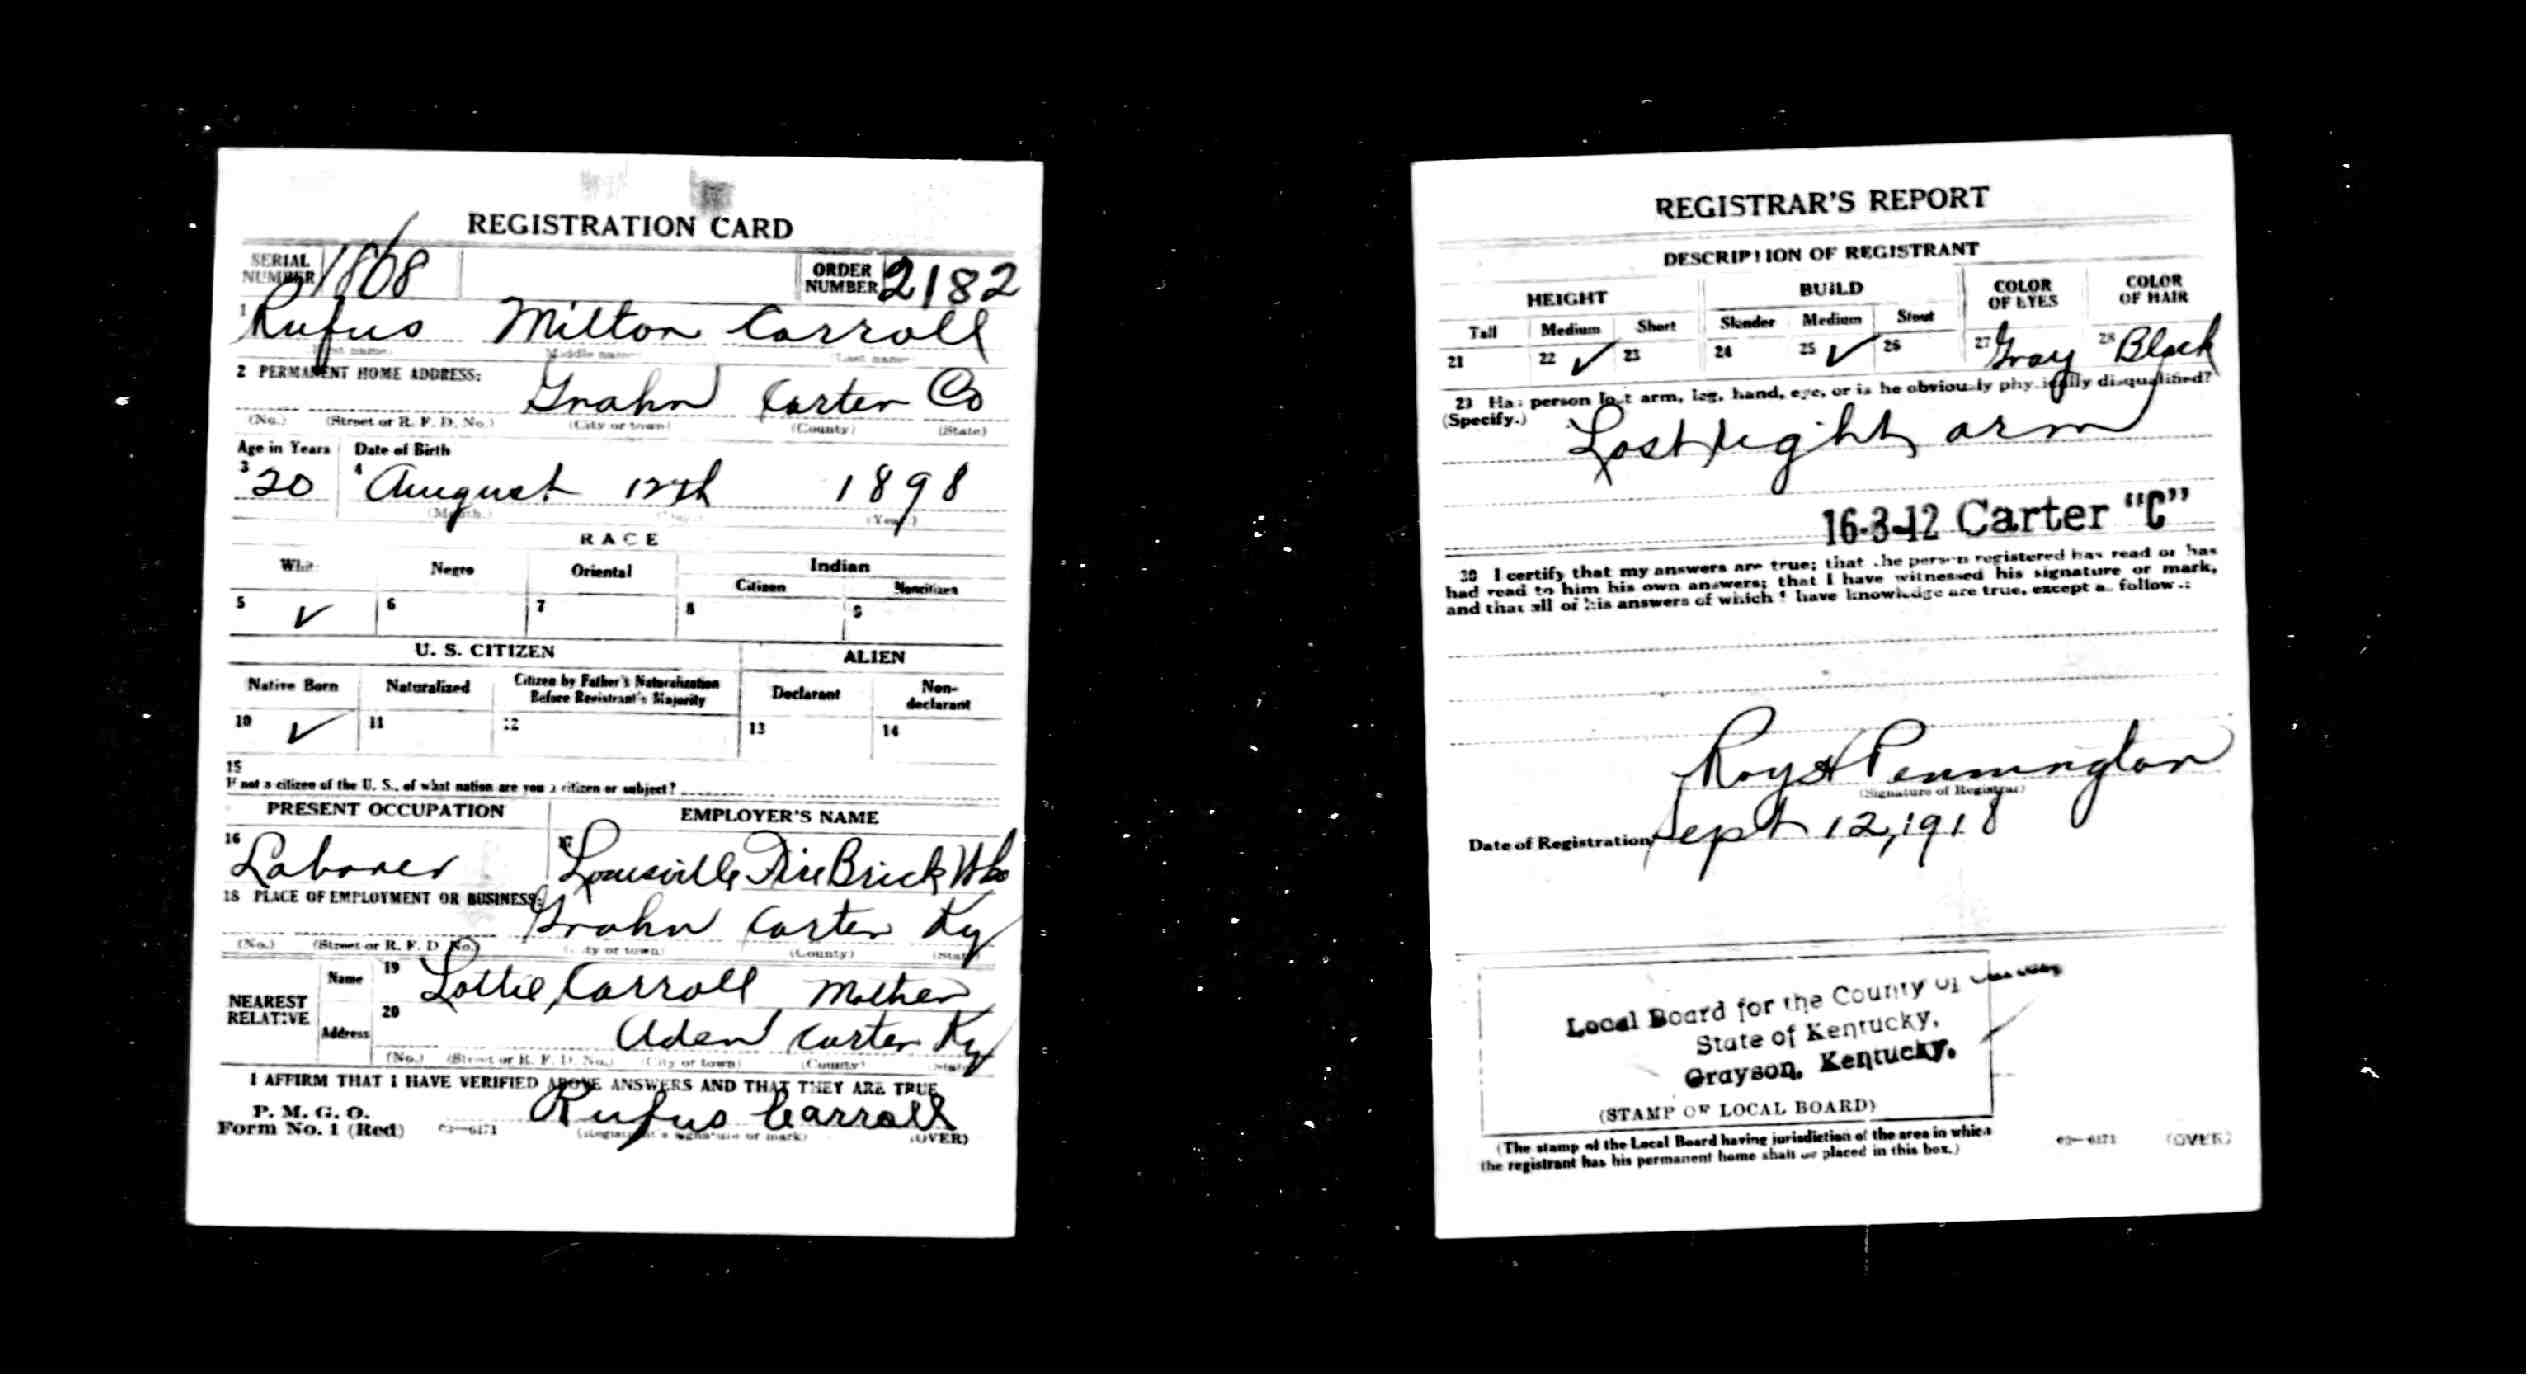 REGISTRATION CARD
SERIAL NUMBER 1868 ORDER NUMBER 2182
1 Rufus Milton Carroll
(First name) (Middle name) (Last name)
2 PERMANENT HOME ADDRESS:
Grahn Carter Co
(No.) (Street or R. F. D. No.) (City or town) (County) (State)
Age in Years Date of Birth
3 20 4 August 12th 1898
(Month.) (Day.) (Year.)
RACE
White Negro Oriental Indian
Citizen Noncitizen
5 ✓ 6 7 8 9
U. S. CITIZEN ALIEN
Native Born Naturalized Citizen by Father's Naturalization Before Registrant's Majority Declarant Non-declarant
10 ✓ 11 12 13 14
15
If not a citizen of the U. S., of what nation are you a citizen or subject?
PRESENT OCCUPATION EMPLOYER'S NAME
16 Laborer 17 Louisville Fire Brick
18 PLACE OF EMPLOYMENT OR BUSINESS:
Grahn Carter Ky
(No.) (Street or R. F. D. No.) (City or town) (County) (State)
NEAREST RELATIVE Name 19 Lottie Carroll Mother
Address 20 Aden Carter Ky
(No.) (Street or R. F. D. No.) (City or town) (County) (State)
I AFFIRM THAT I HAVE VERIFIED ABOVE ANSWERS AND THAT THEY ARE TRUE
P. M. G. O.
Form No. 1 (Red) Rufus Carroll
(Registrant's signature or mark) (OVER)
REGISTRAR'S REPORT
DESCRIPTION OF REGISTRANT
HEIGHT BUILD COLOR OF EYES COLOR OF HAIR
Tall Medium Short Slender Medium Stout
21 22 ✓ 23 24 25 ✓ 26 27 Gray 28 Black
29 Has person lost arm, leg, hand, eye, or is he obviously physically disqualified?
(Specify.) Lost right arm
16-3-12 Carter "C"
30 I certify that my answers are true; that the person registered has read or has
had read to him his own answers; that I have witnessed his signature or mark,
and that all of his answers of which I have knowledge are true, except as follows:
Roy Pennington
(Signature of Registrar)
Date of Registration Sept 12, 1918
Local Board for the County of
State of Kentucky,
Grayson, Kentucky.
(STAMP OF LOCAL BOARD)
(The stamp of the Local Board having jurisdiction of the area in which
the registrant has his permanent home shall be placed in this box.)
(OVER)